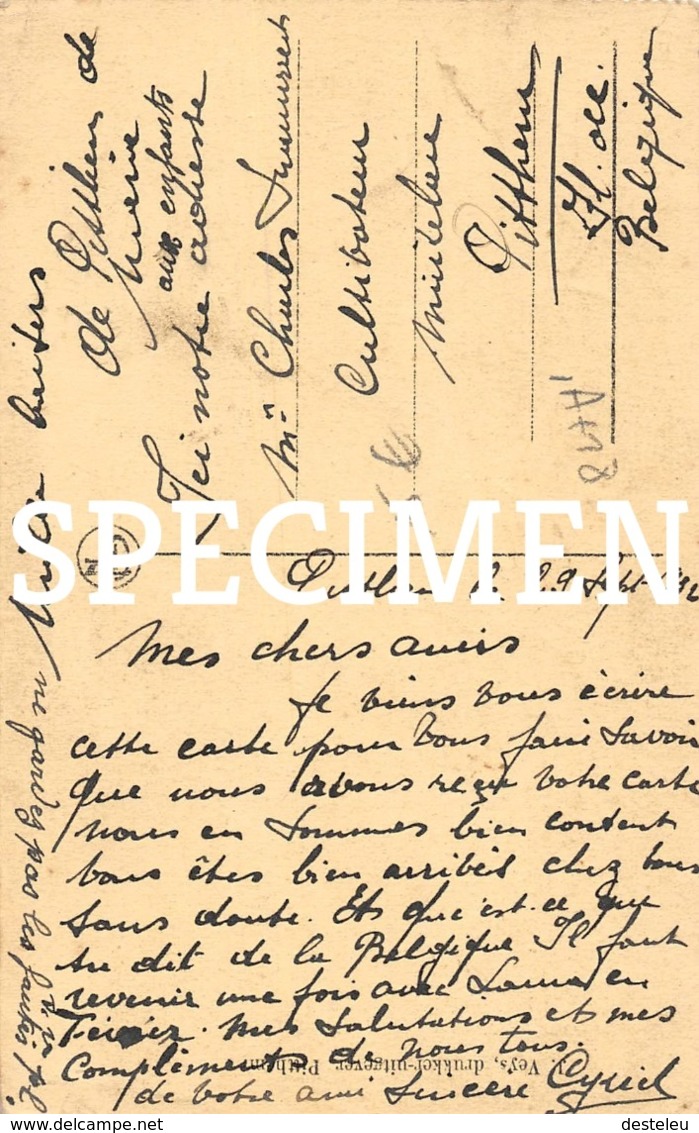 Pitthem le 29 Sept
Mes chers amis
Je viens vous écrire
cette carte pour vous fair savoir
que nous avons reçu votre carte
nous en sommes bien content
vous êtes bien arrivéis chez vous
sans doute. Et qu'est-ce que
tu dit de la Belgique Il faut
revenir une fois avec en
Mes salutations et mes
Compléments de nous tous.
de votre ami sincère Cyriel
ne gardez pas les fautes
Mille baisers
de Pitthem de
Marie
aux enfants
Ici notre adresse
Mr Charles
Cultivateur
Pitthem
Fl. occ.
Belgique
A+18
Veys, drukker-uitgever, Pitthem
SPECIMEN
desteleu